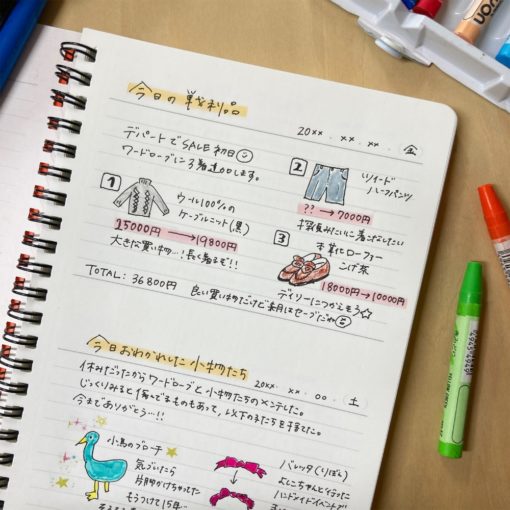 今日の戦利品
20×× . ×× . ×× . 金
デパートでSALE初日
ワードローブに3着追加します。
1
ウール100%の
ケーブルニット(黒)
25000円→19800円
大きな買い物…!長く着るぞ!!
2
ツイード
ハーフパンツ
??→7000円
3
木登化ローファー
こげ茶
18000円→10000円
デイリーにつかえそう☆
TOTAL: 36800円
良い買い物だけど来月はセーブだわ
今日おわかれした小物たち
20××. ×× . ○○ . 土
休みだったからワードローブと小物たちのメンテした。
じっくりみると傷んでるものもあって、以下の子たちを捨てた。
今までありがとう…!!
小鳥のブローチ
気づいたら
片脚かけちゃってた
そうつけて15年…
バレッタ(りぼん)
よしこちゃんと行った
ハンドメイドイベントで